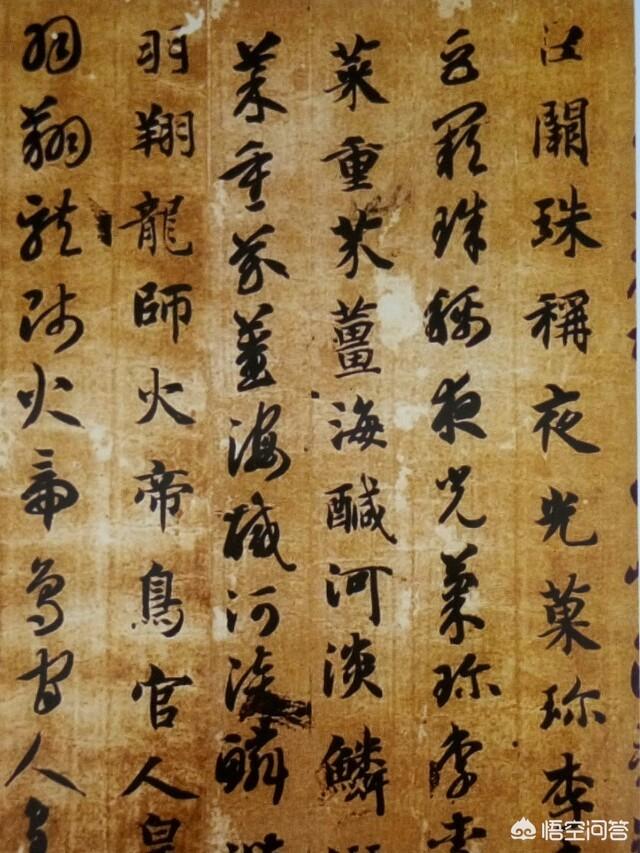 巨闕珠稱夜光菓珎李
巨闕珠稱夜光菓珎李柰
菜重芥薑海醎河淡鱗
菜重芥薑海醎河淡鱗
羽翔龍師火帝鳥官人皇
羽翔龍師火帝鳥官人皇
悟空问答